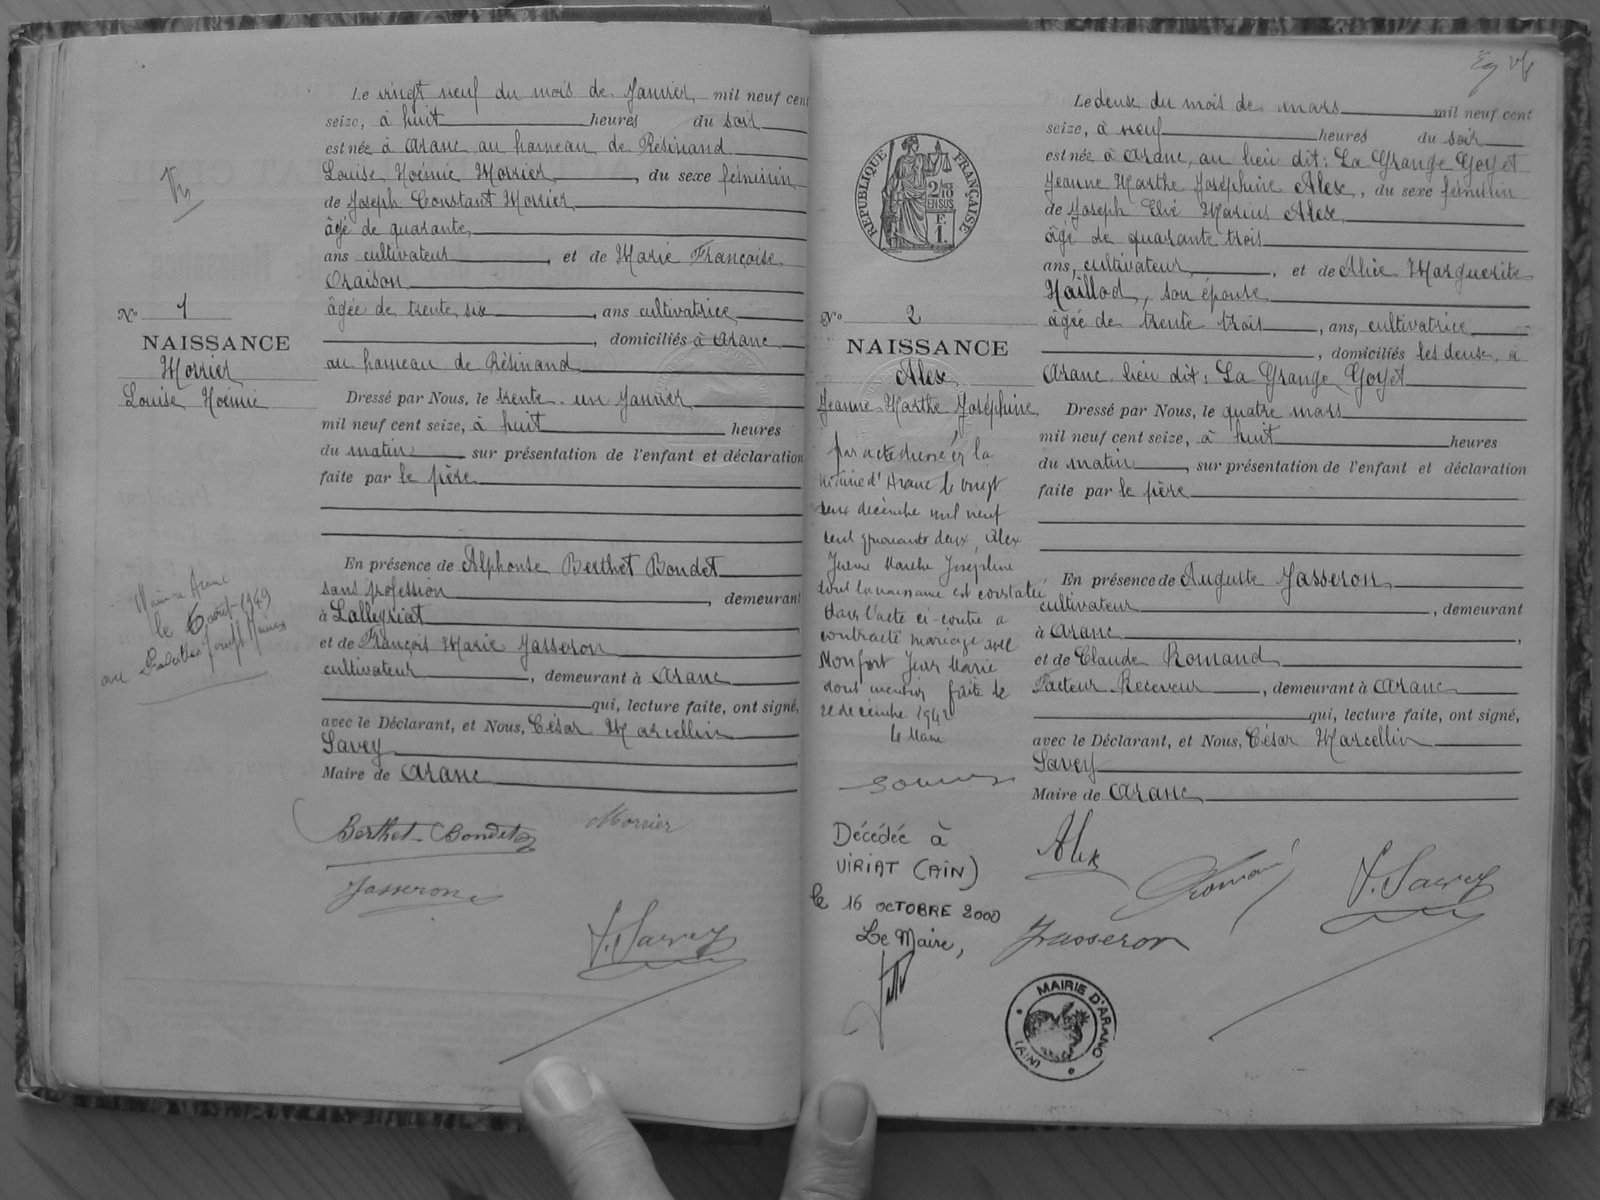 Le vingt neuf du mois de Janvier, mil neuf cent
seize, à huit heures du soir
est née à Aranc au hameau de Résinand
Louise Noémie Morrier, du sexe féminin
de Joseph Constant Morrier
âgé de quarante,
ans cultivateur, et de Marie Françoise
Oraison
âgée de trente six, ans cultivatrice
, domiciliés à Aranc
au hameau de Résinand
Dressé par Nous, le trente un Janvier
mil neuf cent seize, à huit heures
du matin sur présentation de l'enfant et déclaration
faite par le père
En présence de Alphonse Berthet Bondet
sans profession, demeurant
à Lalleyriat
et de François Marie Jasseron
cultivateur, demeurant à Aranc
qui, lecture faite, ont signé,
avec le Déclarant, et Nous, César Marcellin
Savey
Maire de Aranc
No 1
NAISSANCE
Morrier
Louise Noémie
le 6 août 1949
Berthet-Bondet
Morrier
Jasseron
Savey
Le deux du mois de mars mil neuf cent
seize, à neuf heures du soir
est née à Aranc, au lieu dit: La Grange Goyet
Jeanne Marthe Joséphine Alex, du sexe féminin
de Joseph Elie Marius Alex
âgé de quarante trois
ans, cultivateur, et de Alice Marguerite
Maillod, son épouse
âgée de trente trois, ans, cultivatrice
, domiciliés les deux à
Aranc lieu dit: La Grange Goyet
Dressé par Nous, le quatre mars
mil neuf cent seize, à huit heures
du matin, sur présentation de l'enfant et déclaration
faite par le père
En présence de Auguste Jasseron,
cultivateur, demeurant
à Aranc,
et de Claude Romand
Facteur Receveur, demeurant à Aranc
qui, lecture faite, ont signé,
avec le Déclarant, et Nous, César Marcellin
Savey
Maire de Aranc
RÉPUBLIQUE FRANÇAISE
2/10 EN SUS
F.
1.
No 2
NAISSANCE
Alex
Jeanne Marthe Joséphine
par acte dressé à la
mairie d'Aranc le vingt
deux décembre mil neuf
cent quarante deux, Alex
Jeanne Marthe Joséphine
dont la naissance est constatée
dans l'acte ci-contre a
contracté mariage avec
Monfort Jean Marie
dont mention faite le
22 décembre 1942
Le Maire
Décédée à
VIRIAT (AIN)
le 16 OCTOBRE 2000
Le Maire,
Alex
Romand
Savey
Jasseron
MAIRIE D'ARANC
(AIN)